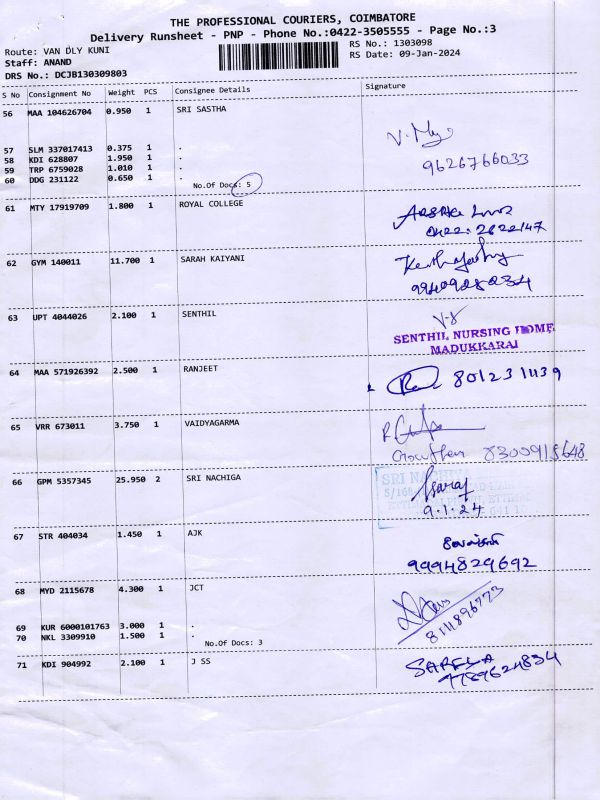 THE PROFESSIONAL COURIERS, COIMBATORE
Delivery Runsheet - PNP - Phone No.:0422-3505555 - Page No.:3
Route: VAN DLY KUNI
RS No.: 1303098
Staff: ANAND
RS Date: 09-Jan-2024
DRS No.: DCJB130309803
S No Consignment No Weight PCS Consignee Details Signature
56 MAA 104626704 0.950 1 SRI SASTHA
57 SLM 337017413 0.375 1 .
58 KDI 628807 1.950 1 .
9626766033
59 TRP 6759028 1.010 1 .
60 DDG 231122 0.650 1 .
No.Of Docs: 5
61 MTY 17919709 1.800 1 ROYAL COLLEGE
0422-2622147
62 GYM 140011 11.700 1 SARAH KAIYANI
99409282034
63 UPT 4044026 2.100 1 SENTHIL
SENTHIL NURSING HOME
MADUKKARAI
64 MAA 571926392 2.500 1 RANJEET
65 VRR 673011 3.750 1 VAIDYAGARMA
Gowthem 8300915648
66 GPM 5357345 25.950 2 SRI NACHIGA
SRI NACHIYA
9.1.24
67 STR 404034 1.450 1 AJK
9994829692
68 MYD 2115678 4.300 1 JCT
8111896773
69 KUR 6000101763 3.000 1 .
70 NKL 3309910 1.500 1 .
No.Of Docs: 3
71 KDI 904992 2.100 1 J SS